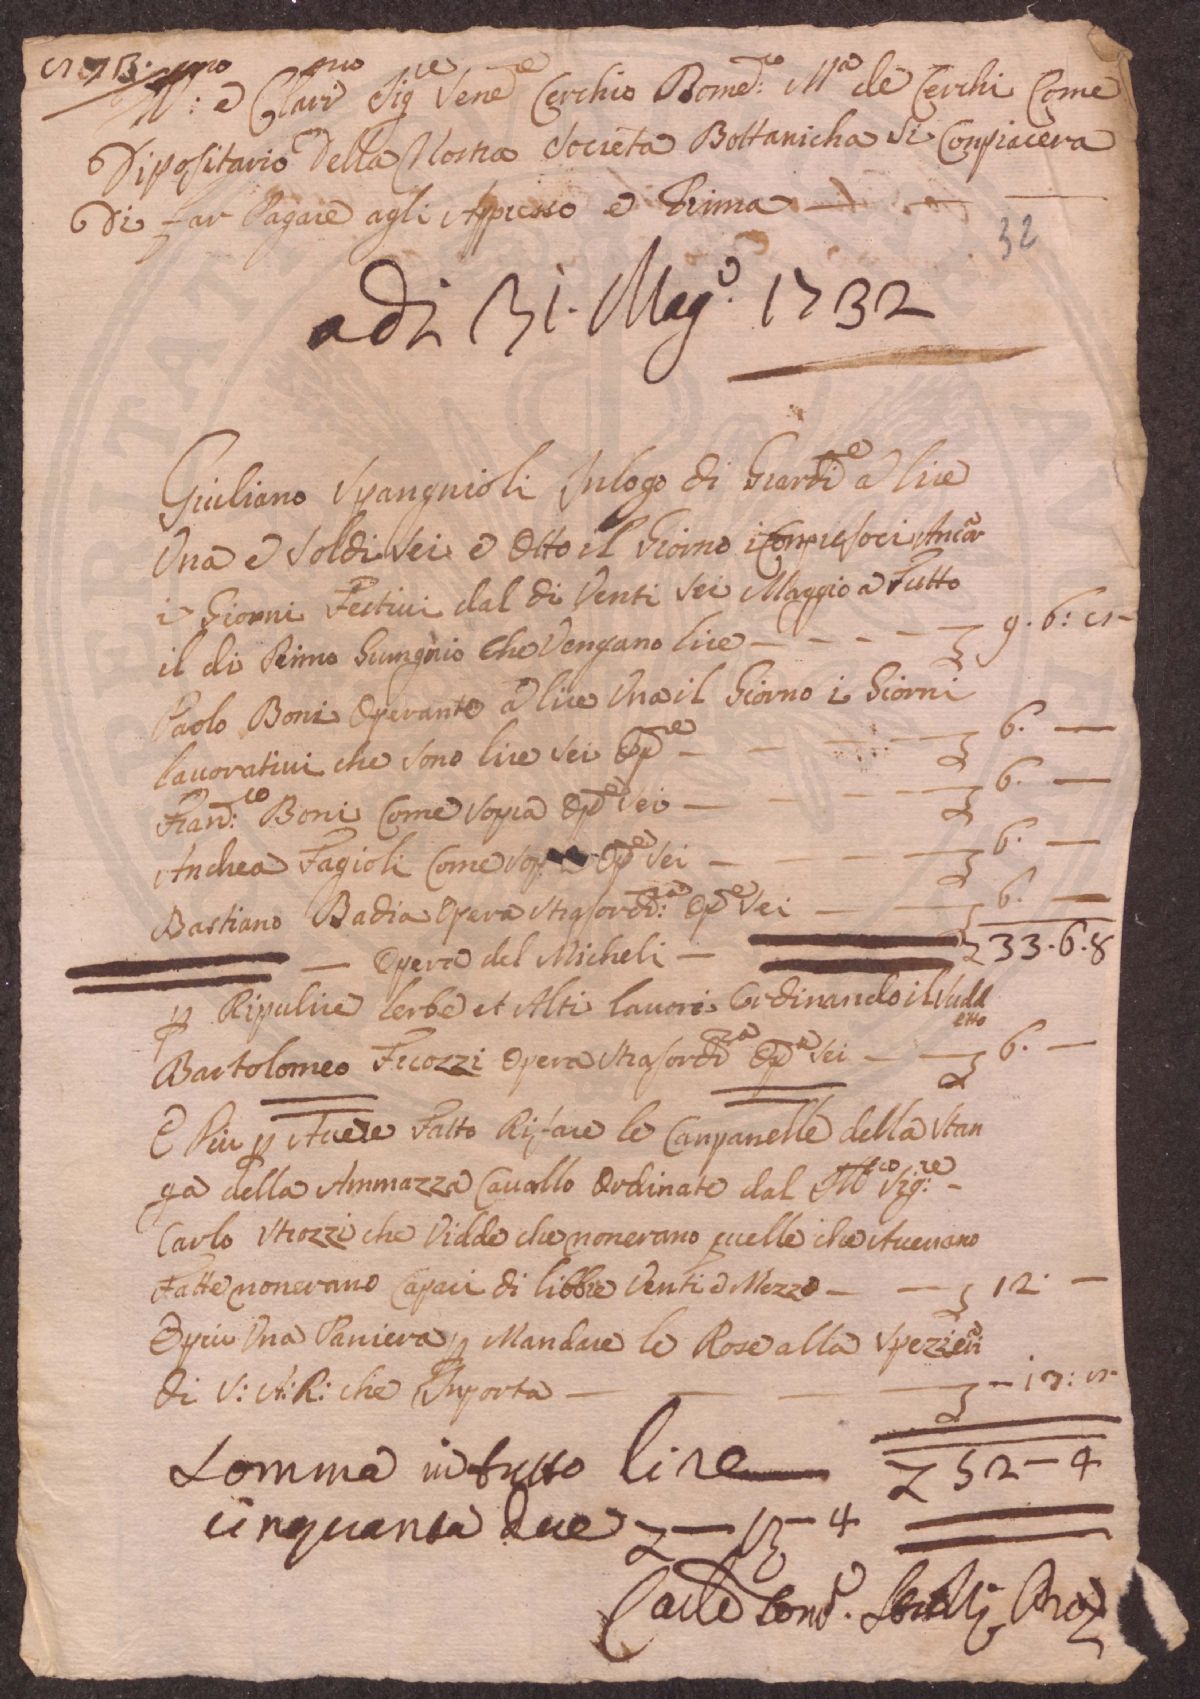 e Clar.mo Sig.re Vene.e Cerchio Bome.co M.a de Cerchi Come
Dipositario Della Nostra Societa Bottanicha Si Conpiacera
Di far Pagare agli Appresso e Prima
32
adi 31. Mag.o 1732
Giuliano Spangnioli Inlogo di Giardi.e a lire
Una e Soldi Sei e Otto il Giorno Conpresoci Ancor
i Giorni Festivi dal di Venti Sei Maggio a Tutto
il di Primo Gungnio Che Vengano lire 9. 6: 8
Paolo Boni Operante a lire Una il Giorno i Giorni
lavorativi che Sono lire Sei Op.re 6.
Fran:co Boni Come Sopra Op.e Sei 6.
Andrea Fagioli Come Sop.a Op.e Sei 6.
Bastiano Badia Opera Strasord:a Op.e Sei 6.
Opera del Micheli 33. 6. 8
p Ripulire lerbe et Altri lavori Ordinando il Sudd
etto
Bartolomeo Ficozzi Opera Strasordi.ra Op.e Sei 6.
E Piu p Avere Fatto Rifare le Canpanelle della Stan
ga della Ammazza Cavallo Ordinate dal Ill.co Sig:re
Carlo Strozzi che Vidde che nonerano quelle che Avevano
Fatte nonerano Capaci di libbre Venti e Mezzo 12
E piu Una Paniera p Mandare le Rose alla Spezieri
di S: A: R: che Inporta 17: 8
Somma in tutto lire 52 - 4
cinquanta due 13 - 4